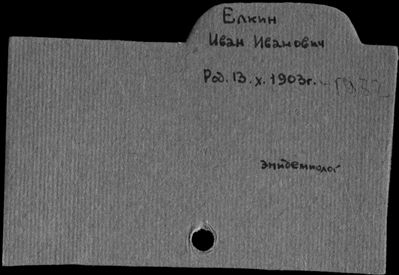 Елкин
Иван Иванович
Род. 13.X.1903г. - 1982
эпидемиолог